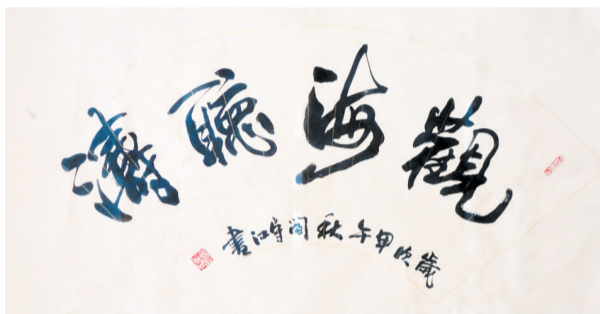 觀海聽濤
歲次甲午秋守江書